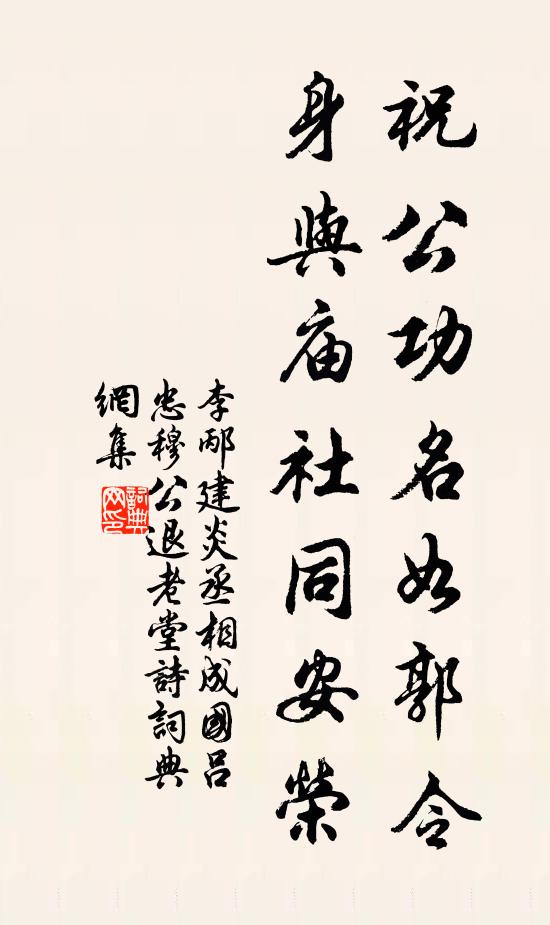 祝公功名如郭令
身與庙社同安榮
李邴建炎丞相成國呂
忠穆公退老堂詩詞典
網集
詞典網印